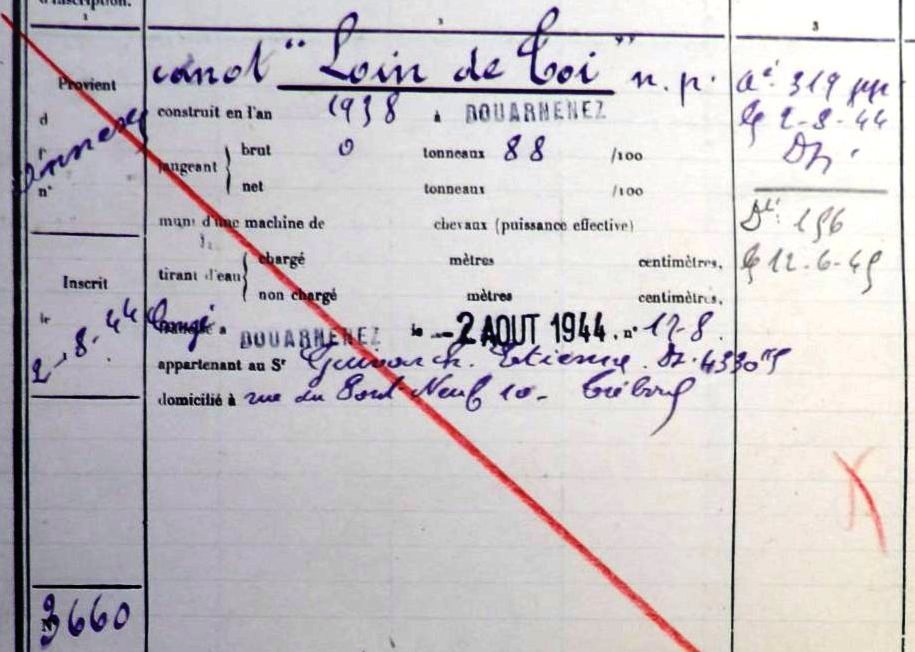 d'inscription.
1
2
3
Provient
d
r
n°
annexe
canot "Loin de Toi" n.p.
construit en l'an 1938 à DOUARNENEZ
jaugeant
brut 0 tonneaux 88 /100
net tonneaux /100
muni d'une machine de chevaux (puissance effective)
tirant d'eau
chargé mètres centimètres,
non chargé mètres centimètres,
Congé
francisé à DOUARNENEZ le -2 AOUT 1944. n° 17-8.
appartenant au Sr Etienne. Dz. 4330
domicilié à rue du Port Neuf 10- Tréboul
Inscrit
le
2-8-44
N° 3660
Ac: 319
le 2-8-44
Dz.
Dt: 156
le 12-6-45